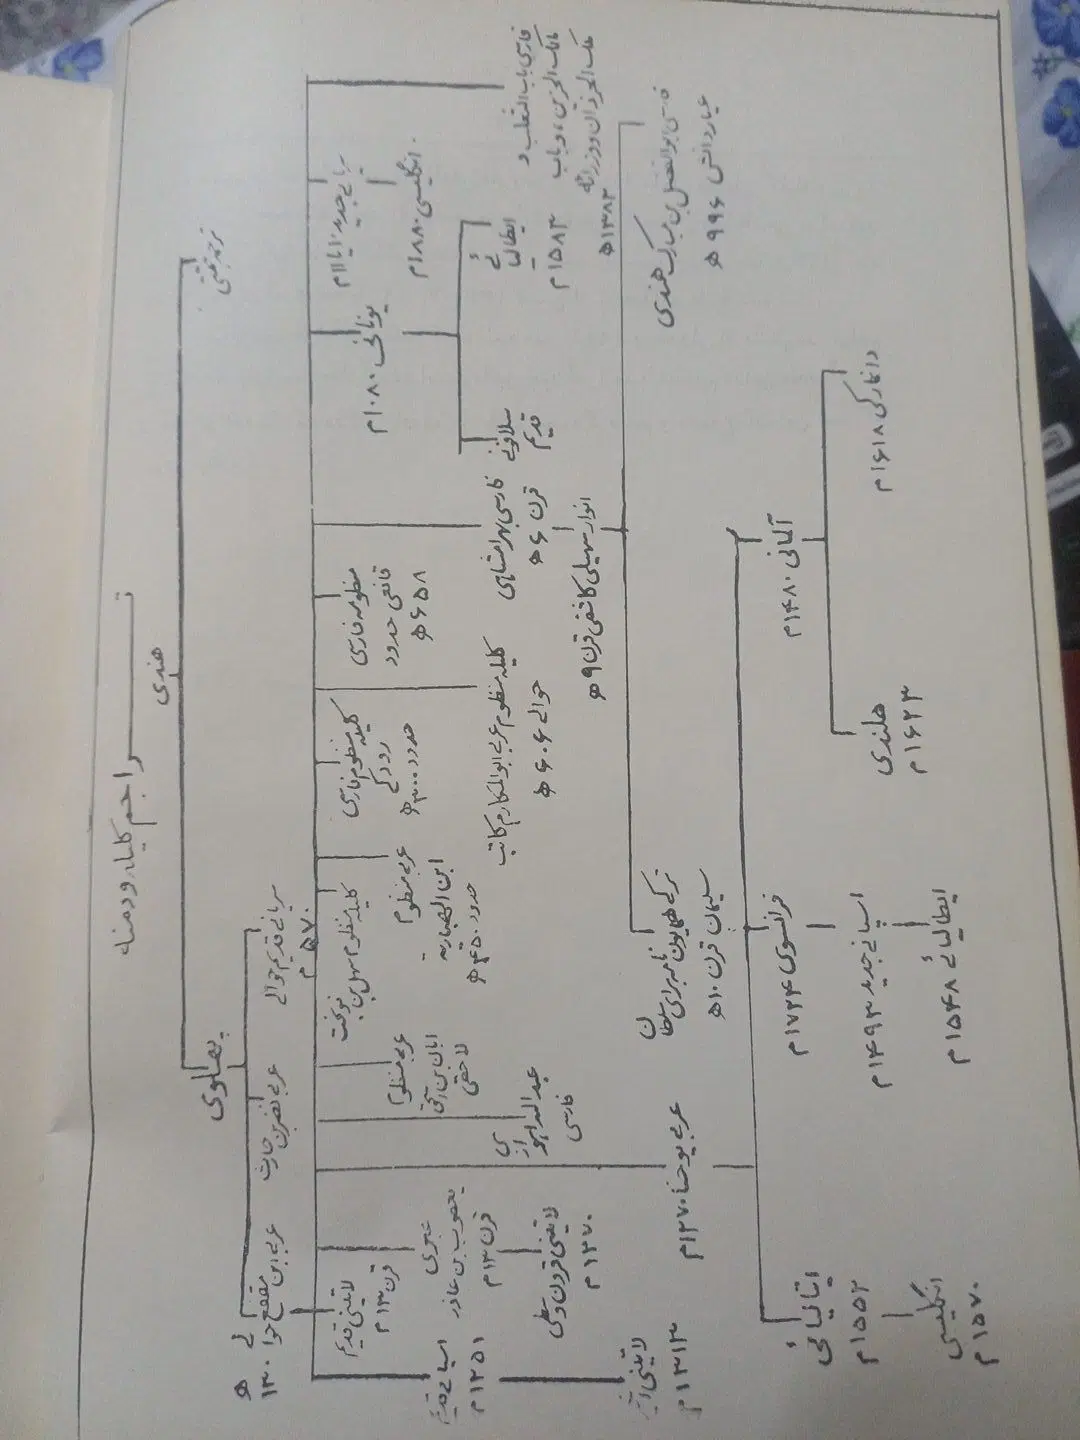 تراجم کلیله و دمنه
هندی
ترجمه تبتی
پهلوی
سریانی قدیم حوالی
۵۷۰ م
عربی نضربن حارث
عربی ابن مقفع حوا
لی
۱۳۰ ه
فارسی باب الثعلب و
مالک الحزین، و باب
۱۳۸۳ ه
سریانی جدید ۱۰ یا ۱۱ م
انگلیسی ۱۸۸۰ م
یونانی ۱۰۸۰ م
ایطالیائی
۱۵۸۳ م
سلاونی
قدیم
فارسی بهرامشاهی
قرن ۶ ه
انوار سهیلی کاشفی قرن ۹ ه
فارسی ابوالفضل بن مبارک هندی
عیار دانش ۹۹۶ ه
ترکی همایون نامه برای سلطان
سلیمان قرن ۱۰ ه
منظومه فارسی
قانعی حدود
۶۵۸ ه
کلیله منظوم عربی ابوالمکارم کاتب
حوالی ۶۰۶ ه
کلیله منظوم فارسی
رودکی
حدود ۳۰۰ ه
عربی منظوم
ابن الهباریه
حدود ۴۵۰ ه
کلیله منظوم سهل بن
نوبخت
عربی منظوم
ابان بن
لاحقی
عبدالله اهوازی
فارسی
عربی یوحنا ۱۲۷۰ م
عبری
یعقوب بن عاذر
قرن ۱۳ م
لاتینی قرون وسطی
۱۲۷۰ م
لاتینی قدیم
قرن ۱۳ م
اسپانی قدیم
۱۲۵۱ م
لاتینی
۱۳۱۳ م
آلمانی ۱۴۸۰ م
دانمارکی ۱۶۱۸ م
هلندی
۱۶۲۳ م
فرانسوی ۱۷۲۴ م
اسپانی جدید ۱۴۹۳ م
ایطالیائی ۱۵۴۸ م
ایتالیائی
۱۵۵۲ م
انگلیسی
۱۵۷۰ م